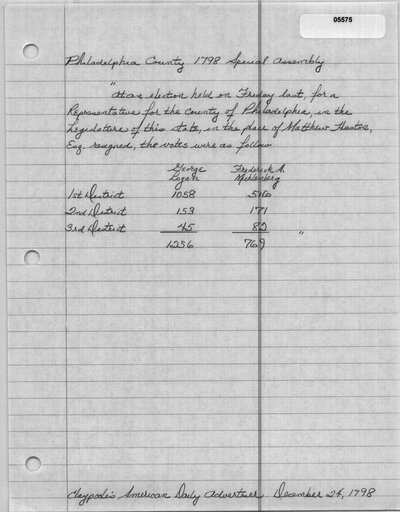 05575
Philadelphia County 1798 Special Assembly
"
At an election held on Friday last, for a
Representative for the County of Philadelphia, in the
Legislature of this state, in the place of Matthew Huston,
Esq. resigned, the votes were as follow
George Frederick A.
Logan Muhlenberg
1st District 1058 516
2nd District 153 171
3rd District 45 82 "
1256 769
Claypoole's American Daily Advertiser. December 24, 1798